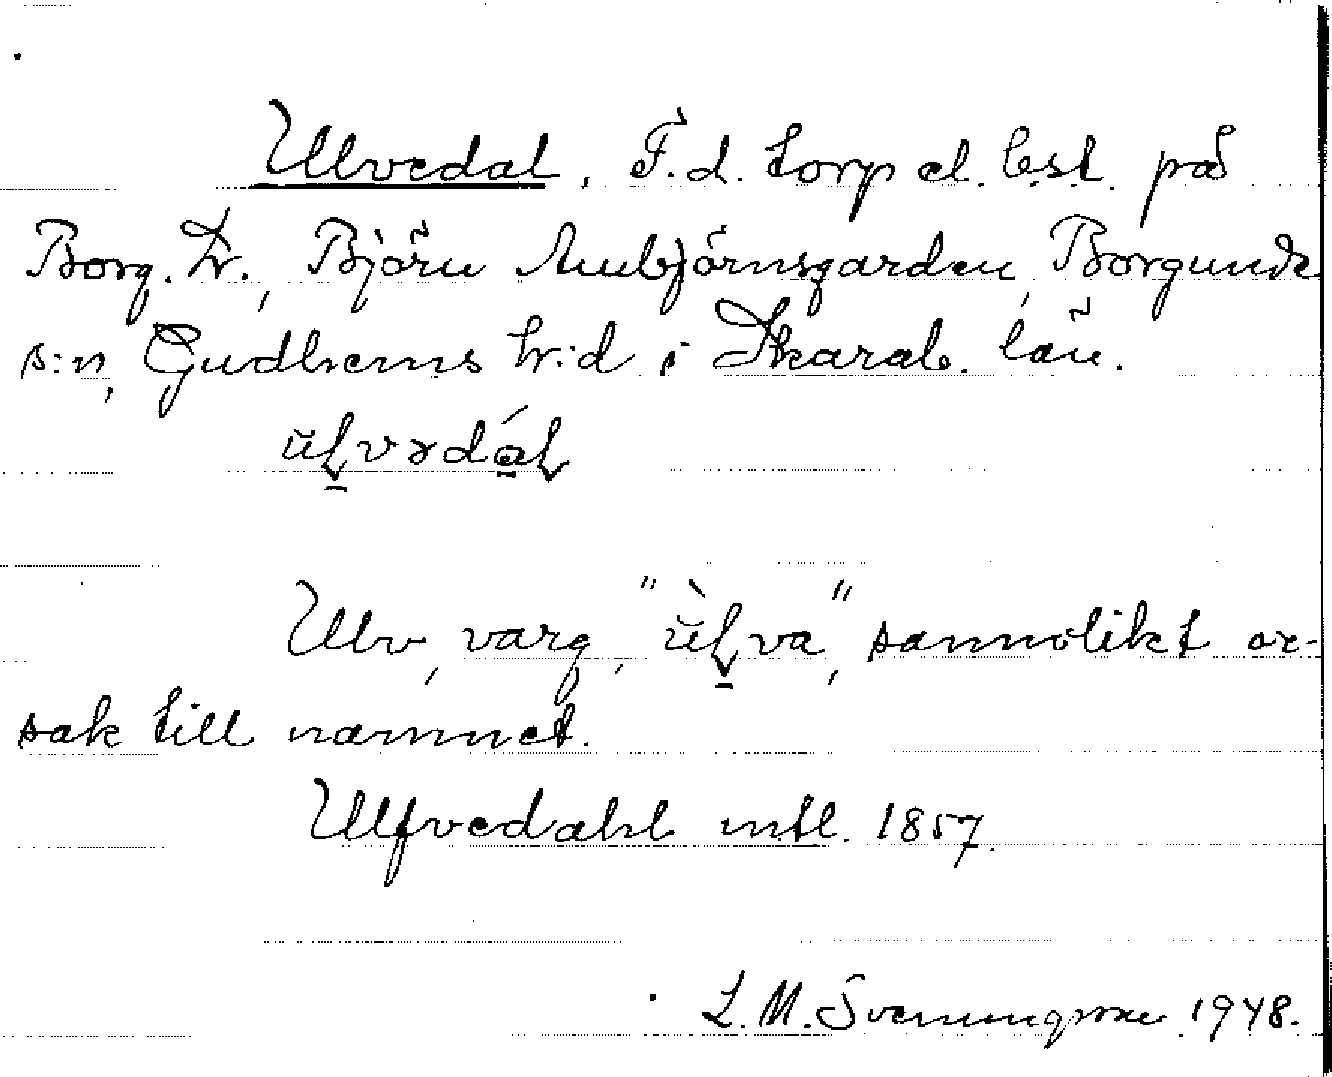 Ulvedal. F.d. torp el. lst. på
Borg. Tr., Björn Ambjörnsgarden, Borgunda
s:n, Gudhems hr:d i Skarab. län.
ulvədál
Ulv, varg, "ùlva", sannolikt or-
sak till namnet.
Ulfvedahl mtl. 1857.
L. M. Svenungsson 1948.